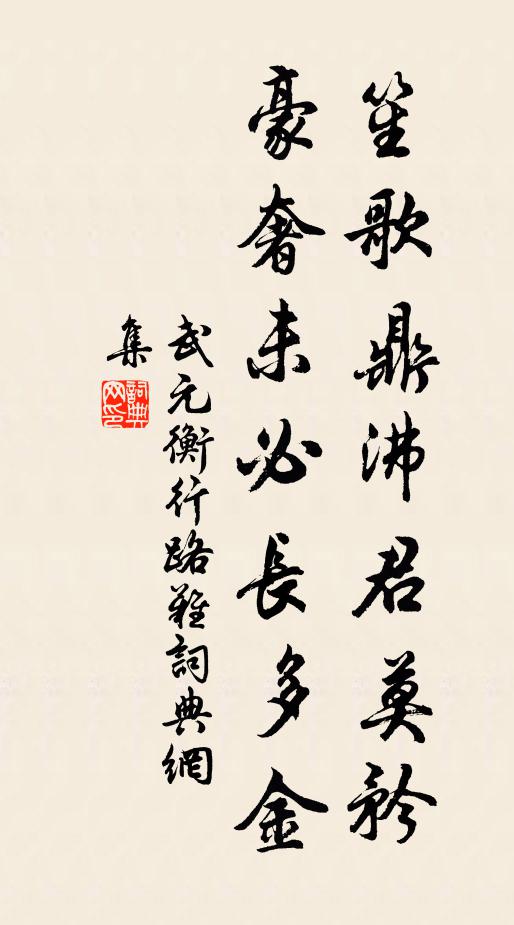 笙歌鼎沸君莫矜
豪奢未必長多金
武元衡行路難詞典網
集
詞典
网印